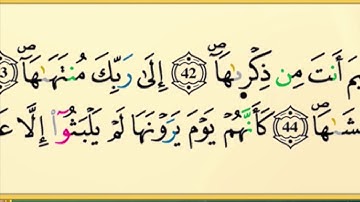 يمَ أَنتَ مِن ذِكْرَىٰهَآ ۝٤٢ إِلَىٰ رَبِّكَ مُنتَهَىٰهَآ
شَىٰهَا ۝٤٤ كَأَنَّهُمْ يَوْمَ يَرَوْنَهَا لَمْ يَلْبَثُوٓا۟ إِلَّا عَ